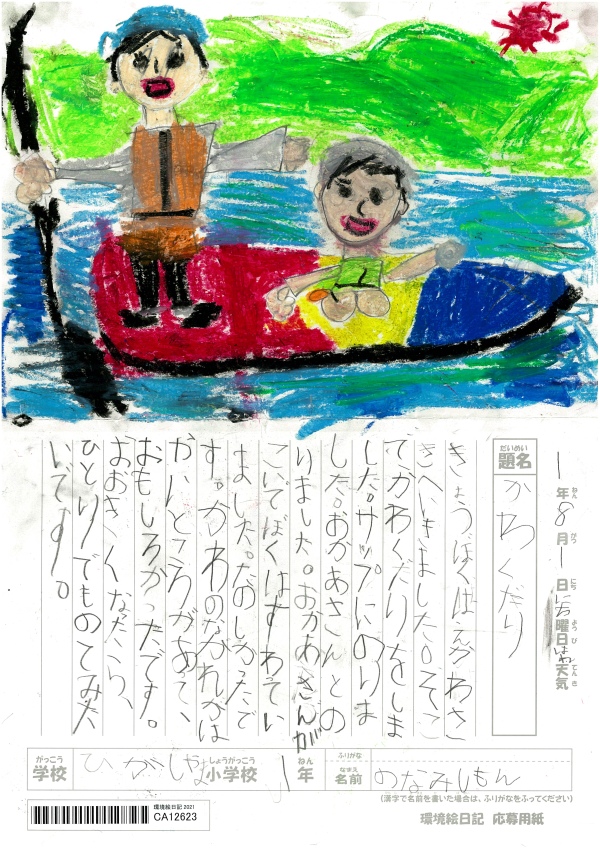 1年8月1日にち曜日はれ天気
ねん がつ にち ようび てんき
だいめい
題名 かわくだり
きょうぼくはえがわさ
きへいきました。そこ
でかわくだりをしま
した。サップにのりま
した。おかあさんとの
りました。おかあさんが
こいでぼくはすわってい
ました。たのしかったで
す。かわのながれがは
やいところがあって、
おもしろかったです。
おおきくなったら、
ひとりでものてみた
いです。
がっこう しょうがっこう ねん ふりがな
学校 ひがしやま小学校 1年
なまえ
名前 のなみしもん
(漢字で名前を書いた場合は、ふりがなをふってください)
環境絵日記 2021
CA12623
環境絵日記 応募用紙